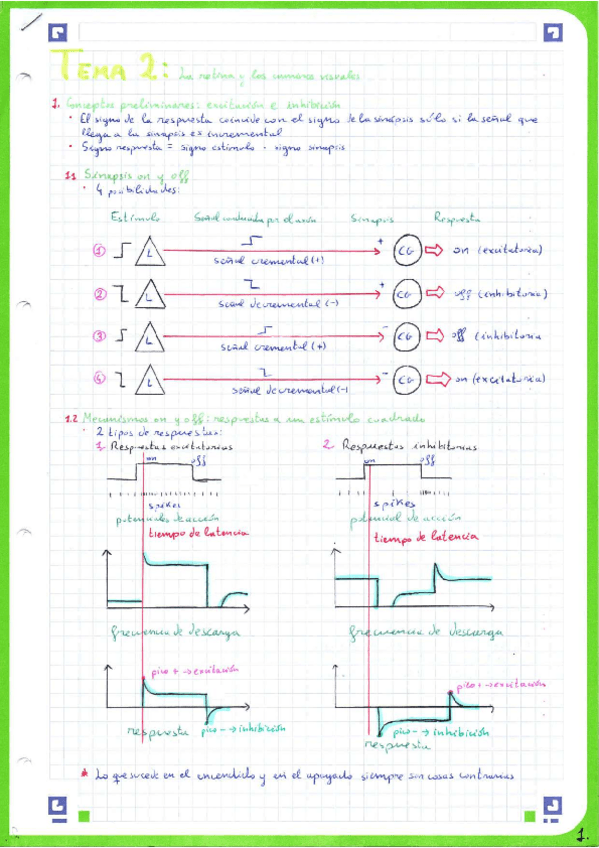 TEMA 2: La retina y los caminos visuales
1. Conceptos preliminares: excitación e inhibición
• El signo de la respuesta coincide con el signo de la sinapsis sólo si la señal que
llega a la sinapsis es incremental
• Signo respuesta = signo estímulo · signo sinapsis
1.1 Sinapsis on y off
• 4 posibilidades:
Estímulo Señal conducida por el axón Sinapsis Respuesta
① L + CG on (excitatoria)
señal cremental (+)
② L + CG off (inhibitoria)
señal decremental (-)
③ L - CG off (inhibitoria
señal cremental (+)
④ L - CG on (excitatoria)
señal decremental (-)
1.2 Mecanismos on y off: respuestas a un estímulo cuadrado
• 2 tipos de respuestas:
1. Respuestas excitatorias
on off
spikes
potenciales de acción
tiempo de latencia
frecuencia de descarga
pico + → excitación
respuesta pico - → inhibición
2. Respuestas inhibitorias
on off
spikes
potencial de acción
tiempo de latencia
frecuencia de descarga
pico + → excitación
pico - → inhibición
respuesta
* Lo que sucede en el encendido y en el apagado siempre son cosas contrarias
1.